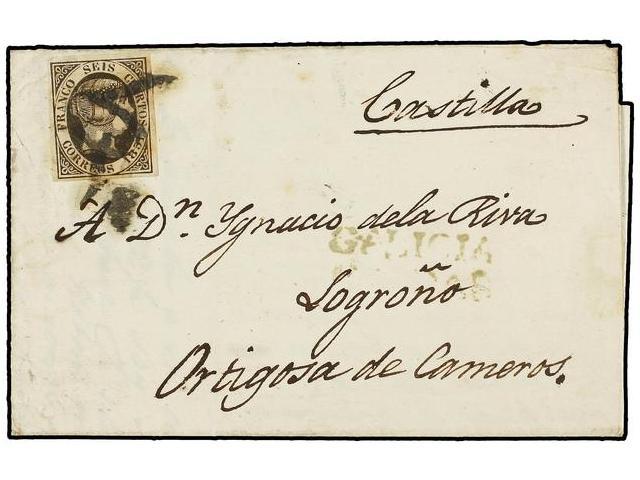 FRANCO SEIS CUARTOS
CORREOS 1851
Castilla
A Dn. Ygnacio dela Riva
GALICIA
Logroño
Ortigosa de Cameros.